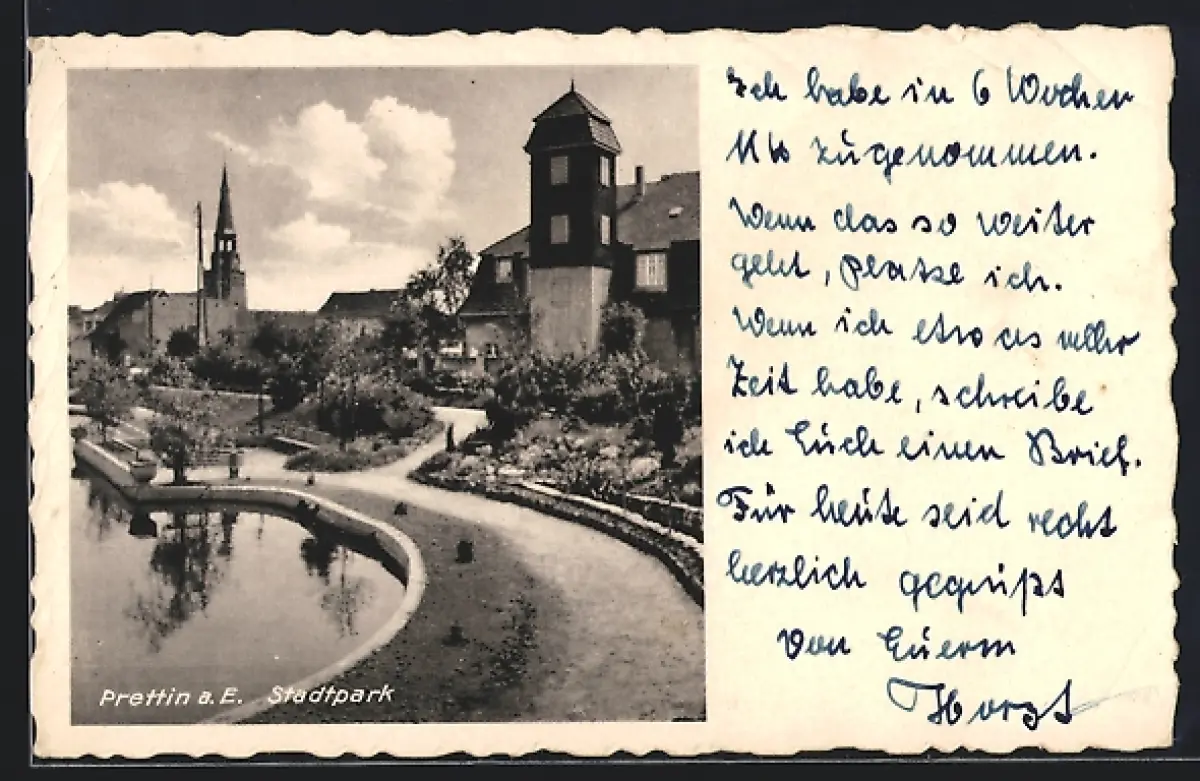 Ich habe in 6 Wochen
zugenommen.
Wenn das so weiter
geht, platze ich.
Wenn ich etwas mehr
Zeit habe, schreibe
ich Euch einen Brief.
Für heute seid recht
herzlich gegrüßt
Von Euerm
Horst
Prettin a. E. Stadtpark